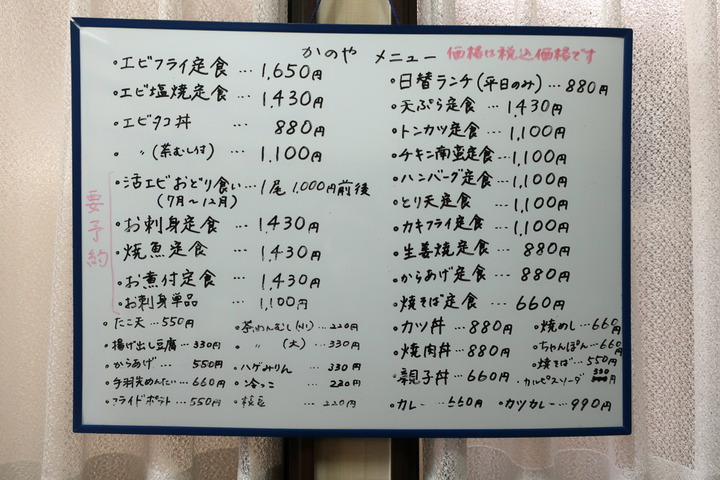 かのや メニュー 価格は税込価格です
・エビフライ定食 … 1,650円
・エビ塩焼定食 … 1,430円
・エビタコ丼 … 880円
・〃 (茶むし付) … 1,100円
要予約
・活エビおどり食い … 1尾 1,000円前後
(7月〜12月)
・お刺身定食 … 1,430円
・焼魚定食 … 1,430円
・お煮付定食 … 1,430円
・お刺身単品 … 1,100円
・たこ天 … 550円
・揚げ出し豆腐 … 330円
・からあげ … 550円
・手羽先めんたい … 660円
・フライドポテト … 550円
・茶わんむし(小) … 220円
・〃 (大) … 330円
・ハゲみりん … 330円
・冷っこ … 220円
・枝豆 … 220円
・日替ランチ(平日のみ) … 880円
・天ぷら定食 … 1,430円
・トンカツ定食 … 1,100円
・チキン南蛮定食 … 1,100円
・ハンバーグ定食 … 1,100円
・とり天定食 … 1,100円
・カキフライ定食 … 1,100円
・生姜焼定食 … 880円
・からあげ定食 … 880円
・焼そば定食 … 660円
・カツ丼 … 880円
・焼肉丼 … 880円
・親子丼 … 660円
・カレー … 550円
・焼めし … 660円
・ちゃんぽん … 660円
・焼そば … 550円
・カルピスソーダ 330円
・カツカレー … 990円